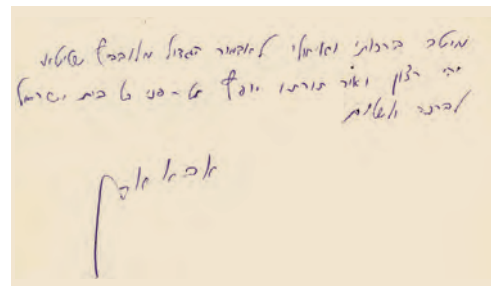 מיטב ברכותי ואיחולי לאדמור הגדול מלובביץ שליטא
יהי רצון ואור תורתו יופיץ על-פני כל בית ישראל
לברכה ולשלום
אבא אבן